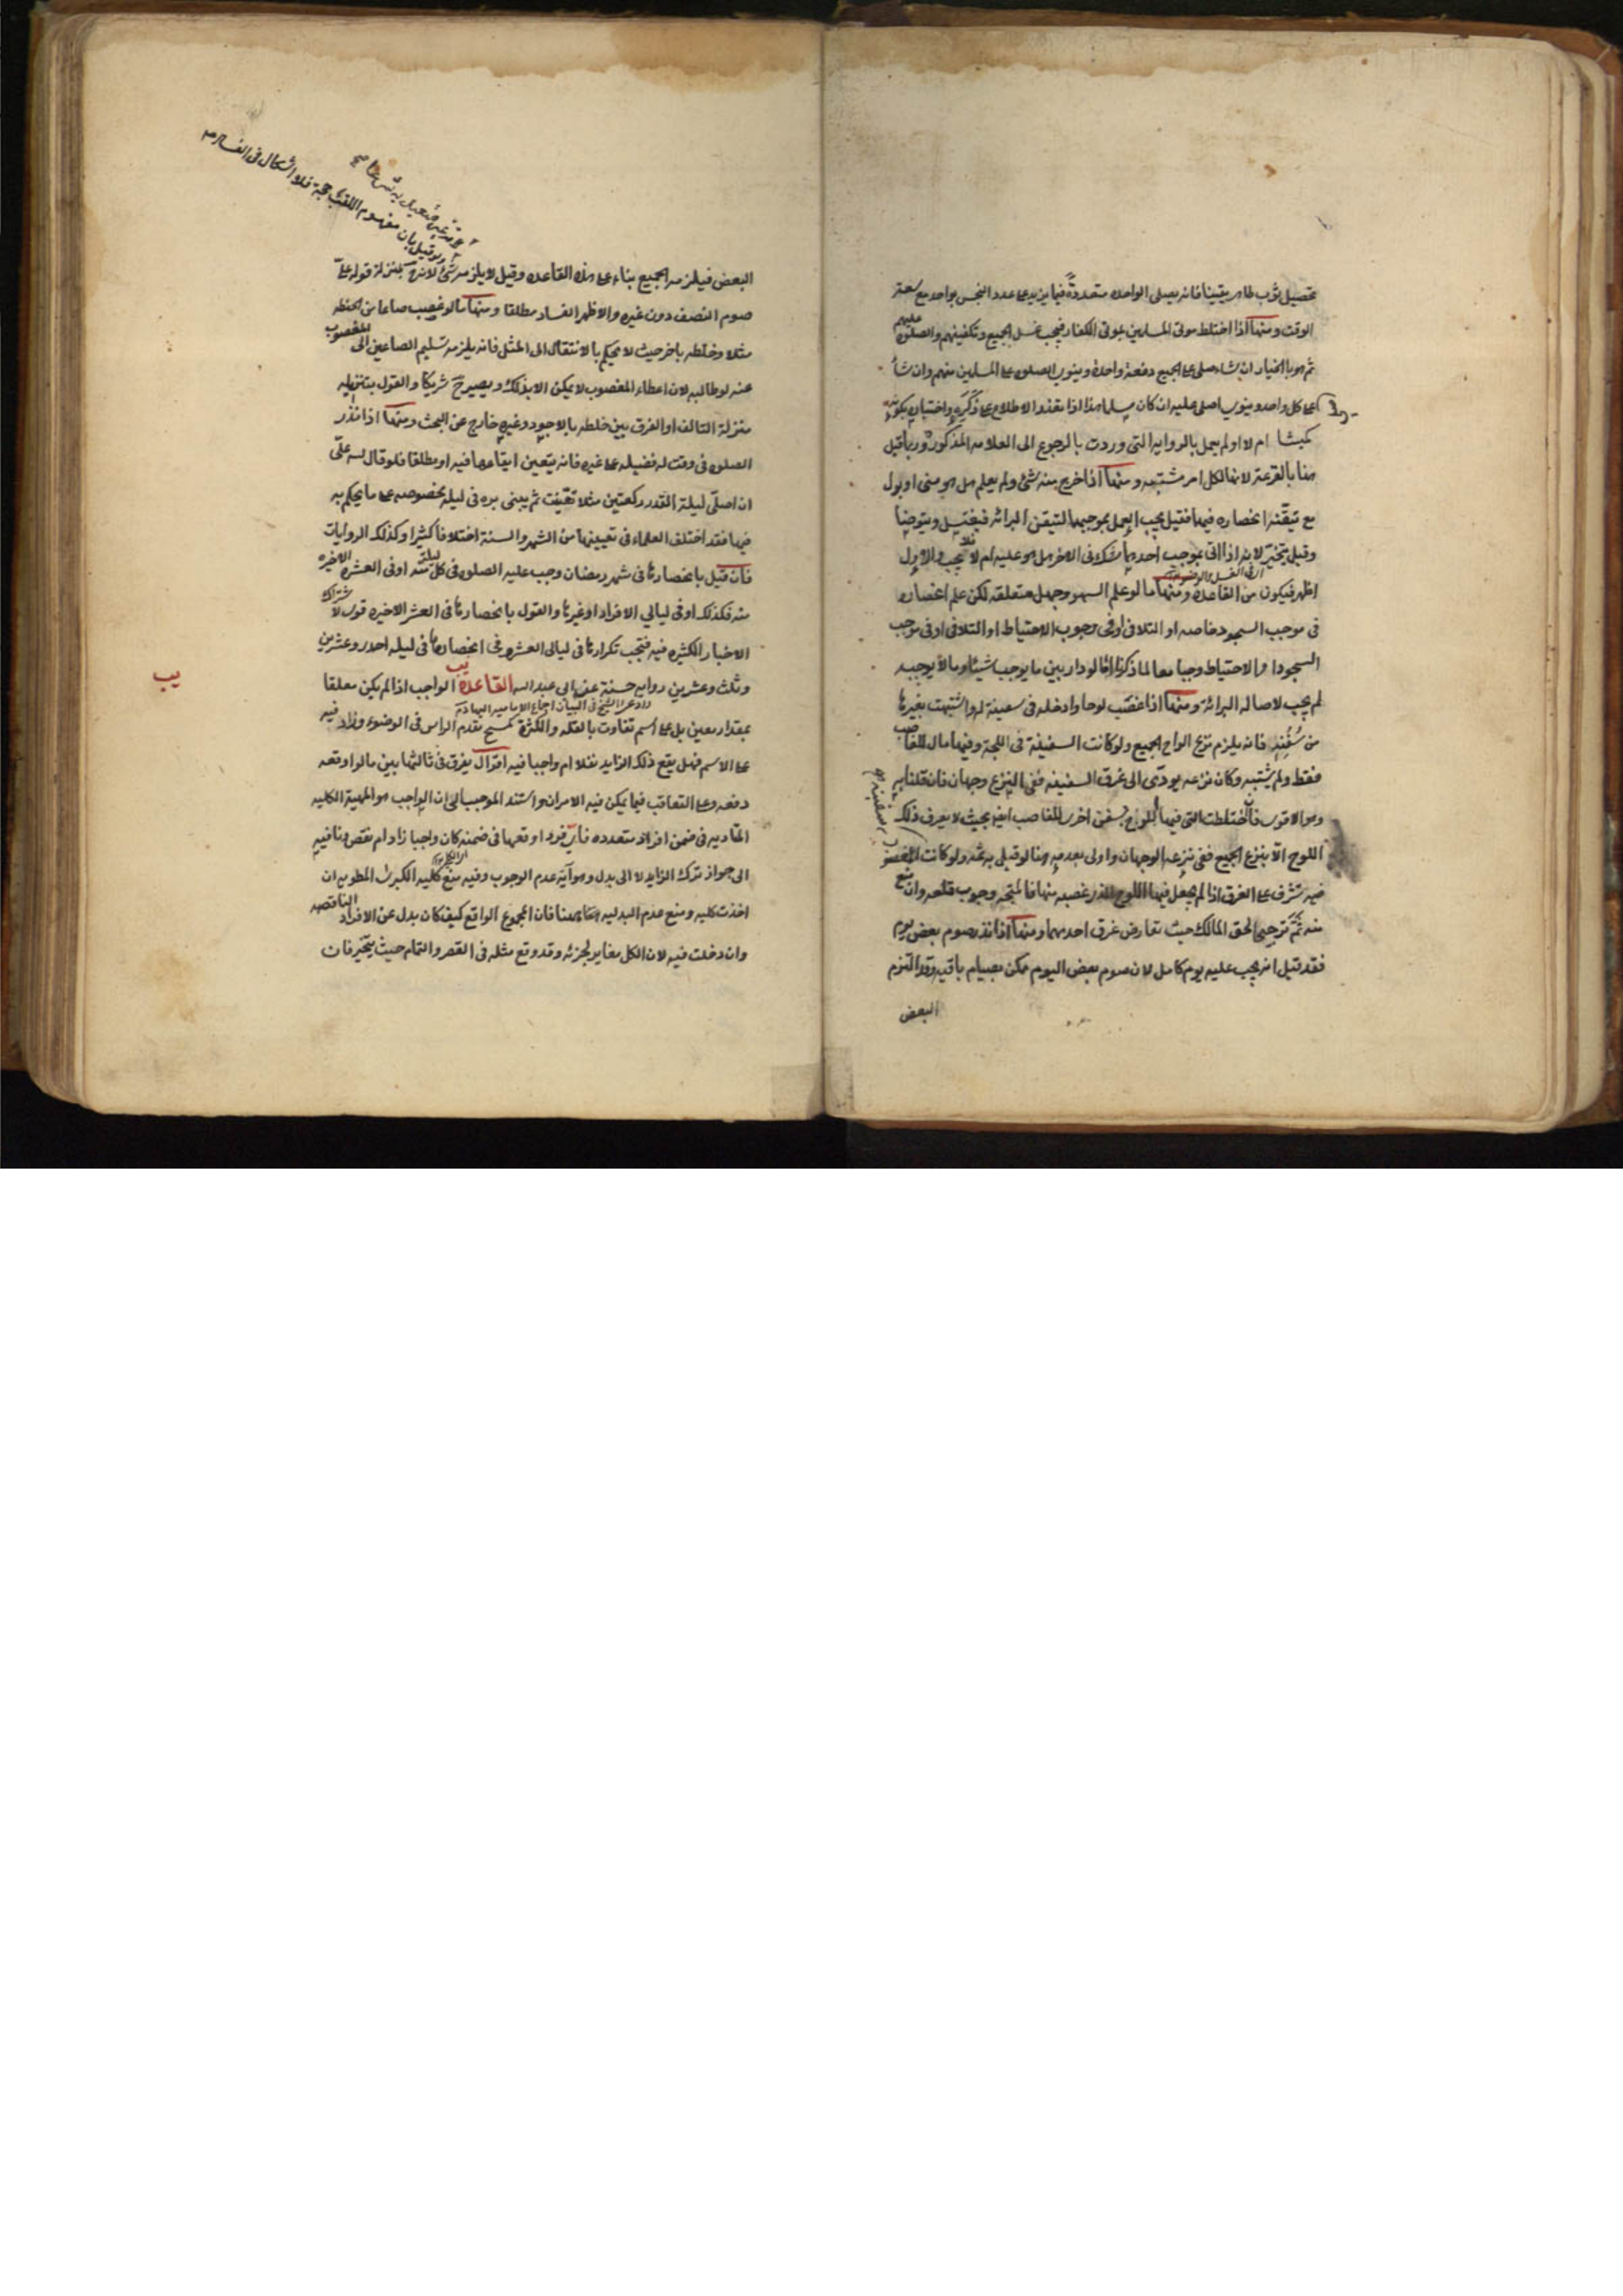 تحصيل ثوب طاهر يقينا فانه يصلى الواحده متعددة فيما يزيد على عدد النجس بواحد مع سعة
الوقت ومنها اذا اختلط موتى المسلمين بموتى الكفار فيجب غسل الجميع وتكفينهم والصلوة عليهم
ثم هو بالخيار ان شاء صلى على الجميع دفعة واحدة وينوى الصلوه على المسلمين منهم وان شاء
على كل واحد وينوى اصلى عليه ان كان مسلما هذا اذا تعذر الاطلاع على ذكره واختباره بكونه
كميشا ام لا او لم يعمل بالروايه التى وردت بالرجوع الى العلامه المذكورة وربما قيل
هنا بالقرعة لانها لكل امر مشتبه ومنها اذا خرج منه شئ ولم يعلم هل هو منى او بول
مع تيقنه انحصاره فيهما فقيل يجب العمل بموجبهما لتيقن البرائه فيغتسل ويتوضأ
وقيل يتخير لانه اذا اتى بموجب احدهما شك فى الاخر هل هو عليه ام لا فلا يجب والاول
اظهر فيكون من القاعدة ومنها ما لو علم السهو وجهل متعلقه لكن علم انحصاره
اى الغسل والوضوء
فى موجب السجود خاصه او التلافى او فى وجوب الاحتياط او التلافى او فى موجب
السجود او الاحتياط وجبا معا لما ذكرناه اما لو دار بين ما يوجب شيئا وما لا يوجبه
لم يجب لاصاله البرائة ومنها اذا غصب لوحا وادخله فى سفينة له واشتبهت بغيرها
من سفنه فانه يلزم نزع الواح الجميع ولو كانت السفينة فى اللجة وفيها مال للغاصب
فقط ولم يشتبه وكان نزعه يودى الى غرق السفينه ففى النزع وجهان فان قلنا به
وهو الاقوى فاختلطت التى فيها اللوح بسفن اخرى للغاصب ايضا بحيث لا يعرف ذلك
السفينة
اللوح الا بنزع الجميع ففى نزعه الوجهان واولى بعدمه هنا لو قيل به ثمه ولو كانت المغصوب
فيه تشرف على الغرق اذا لم يجعل فيها اللوح الذى غصبه منها فالمتجه وجوب قلعه وان منع
منه ثم ترجيحا لحق المالك حيث تعارض غرق احدهما ومنها اذا نذر صوم بعض يوم
فقد قيل انه يجب عليه يوم كامل لان صوم بعض اليوم ممكن بصيام باقيه وقد التزم
البعض
لو قيل بان مفهوم اللقب حجة فلا اشكال فى الفساد منه
البعض فيلزمه الجميع بناء على هذه القاعده وقيل لا يلزمه شئ لانه بمنزلة قوله على
صوم النصف دون غيره والاظهر الفساد مطلقا ومنها ما لو غصب صاعا من الحنطه
مثلا وخلطه باخر حيث لا يحكم بالانتقال الى المثل فانه يلزمه تسليم الصاعين الى المغصوب
عنه لو طالبه لان اعطاء المغصوب لا يمكن الا بذلك ويصير ح شريكا والقول بتنزيله
منزلة التالف او الفرق بين خلطه بالاجود وغيره خارج عن البحث ومنها اذا نذر
الصلوه فى وقت له فضيله على غيره فانه يتعين ايقاعها فيه او مطلقا فلو قال لله على
ان اصلى ليلة القدر ركعتين مثلا تعينت ثم يبنى بره فى ليله بخصوصه على ما يحكم به
فيها فقد اختلف العلماء فى تعيينها من الشهر والسنة اختلافا كثيرا وكذلك الروايات
فان قيل بانحصارها فى شهر رمضان وجب عليه الصلوه فى كل ليلة منه او فى العشره الاخيره
منه فكذلك او فى ليالى الافراد او غيرها والقول بانحصارها فى العشر الاخيره قوى لاشتراك
الاخبار الكثيره فيه فتجب تكرارها فى ليالى العشره وفى انحصارها فى ليله احدى وعشرين
وثلث وعشرين روايه حسنة عن ابى عبد الله القاعدة يب الواجب اذا لم يكن معلقا
يب
وادعى الشيخ فى التبيان اجماع الاماميه
بمقدار معين بل على اسم تفاوت بالقله والكثرة كمسح مقدم الراس فى الوضوء وزاد فيه
على الاسم فهل يقع ذلك الزايد نفلا ام واجبا فيه اقوال يفرق فى ثالثها بين ما لو اوقعه
دفعه وعلى التعاقب فيما يمكن فيه الامران واستند الموجب الى ان الواجب هو المهية الكليه
المتاديه فى ضمن افراد متعدده فاى فرد اوقعها فى ضمنه كان واجبا زاد ام نقص ونافيه
الى جواز ترك الزايد لا الى بدل وهو آية عدم الوجوب وفيه منع كليه الكبرى المطويه ان
اخذت كليه ومنع عدم البدليه هنا فان المجموع الواقع كيف كان بدل عن الافراد الناقصه
وان دخلت فيه لان الكل مغاير لجزئه وقد وقع مثله فى القصر والتمام حيث يتخير فان